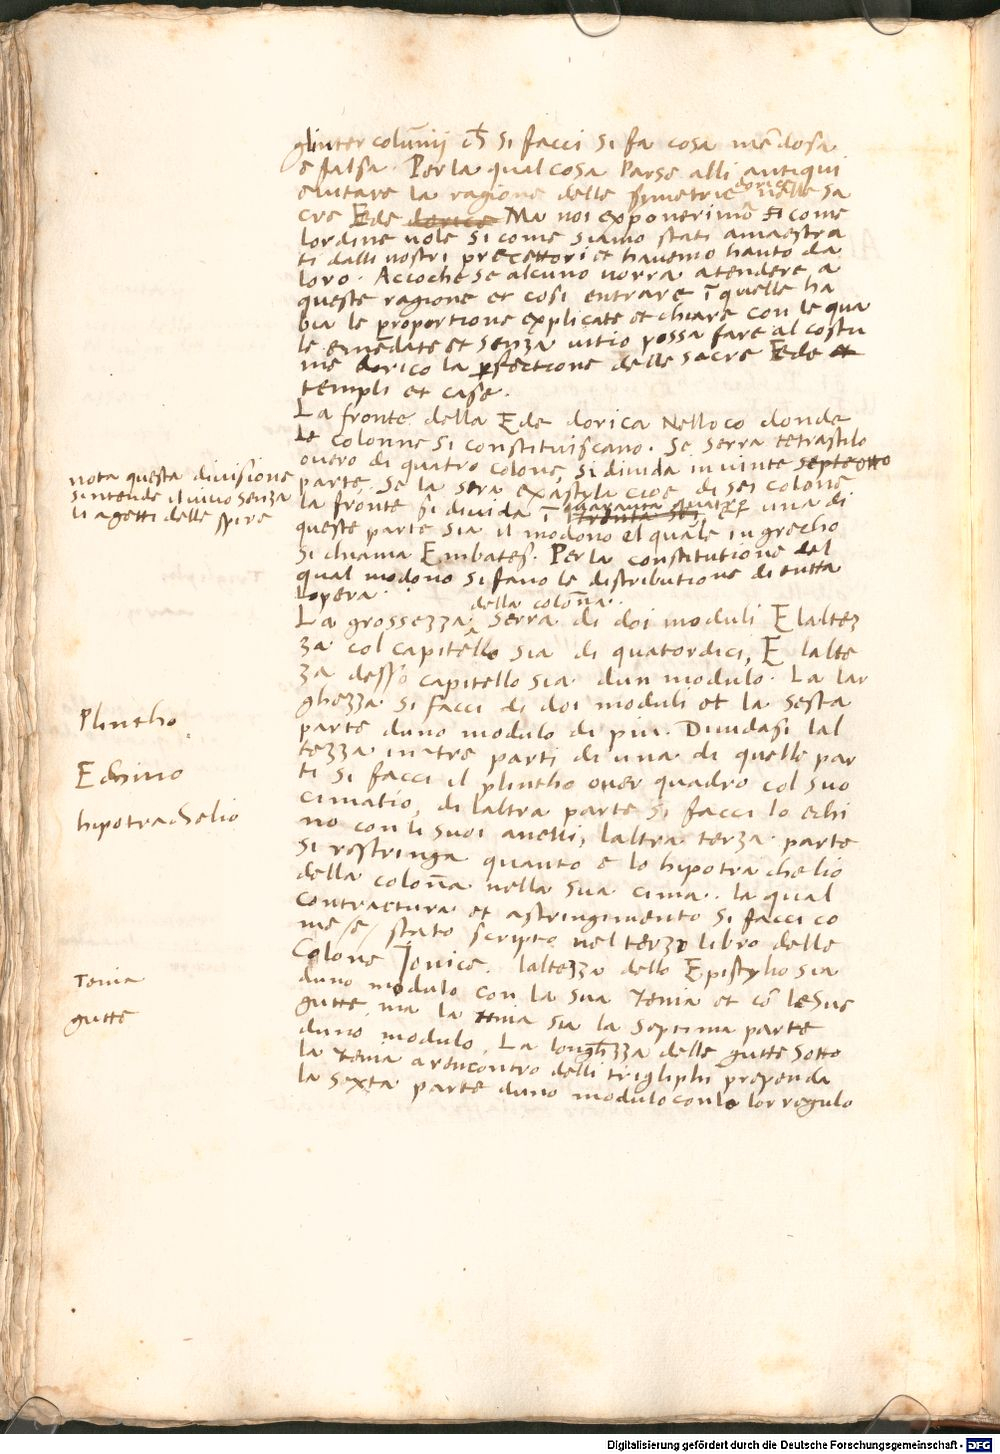 glinter colũnij ch̃ si facci si fa cosa mẽdosa
e falsa. Per la qual cosa Parse alli antiqui
evitare la ragione delle simetrie dorice nelle sa
cre Ede dorice Ma noi exponerimo si come
lordine vole si come siamo stati amaestra
ti dalli nostri precettori et havemo hauto da
loro. Accoche se alcuno vorra atendere a
queste ragione et cosi entrare ĩ quelle ha
bia le proportione explicate et chiare con le qua
le emẽdate et senza vitio possa fare al costu
me dorico la perfectione delle sacre Ede et
templi et case.
La fronte della Ede dorica Nelloco donde
le colonne si constituiscano. Se serra tetrastilo
overo di quatro colone, si divida in vinte septe otto
parte. Se la sera exastyla cioe di sei colone
la frõte si divida ĩ quaranta quatro trenta sei, una di
queste parte sia il modono el quale in grecho
si chiama Embates. Per la constitutione del
qual modono si fano le distributione di tutta
lopera.
La grossezza della colonna serra di doi moduli E laltez
za col capitello sia di quatordici, E lalte
za desso capitello sia dun modulo. La lar
ghezza si facci di doi moduli et la sesta
parte duno modulo di piu. Dividasi lal
tezza in tre parti di una di quelle par
ti si facci il plintho over quadro col suo
cimatio, di laltra parte si facci lo echi
no con li suoi anelli, laltra terza parte
si restringa quanto e lo hipotrachelio
della colonna nella sua cima. la qual
contractura et astringimento si facci co
me /e/ stato scripto nel terzo libro delle
Colone Ionice. laltezza dello Epistylio sia
duno modulo con la sua Tenia et cõ le sue
gutte, ma la tenia sia la septima parte
duno modulo. La longhezza delle gutte sotto
la Tenia a rencontro delli trigliphi prependa
la sexta parte duno modulo con lo lor regulo
nota questa divisione
sintende il vivo senza
li agetti delle spire
Plintho.
Echino
hipotrachelio
Tenia
gutte
Digitalisierung gefördert durch die Deutsche Forschungsgemeinschaft - DFG